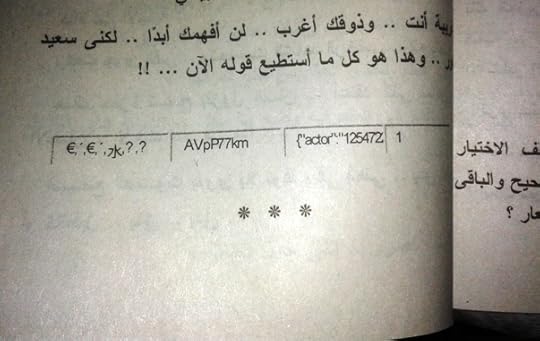 أنت .. وذوقك أغرب .. لن أفهمك أبدًا .. لكنى سعيد
.. وهذا هو كل ما أستطيع قوله الآن ... !!
AVpP77km {"actor":"125472 1
* * *
الاختيار
والباقى
؟